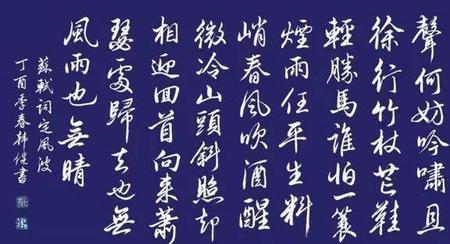 聲何妨吟嘯且
徐行竹杖芒鞋
輕勝馬誰怕一蓑
煙雨任平生料
峭春風吹酒醒
微冷山頭斜照却
相迎回首向來蕭
瑟處歸去也無
風雨也無晴
蘇軾詞定風波
丁酉季春書